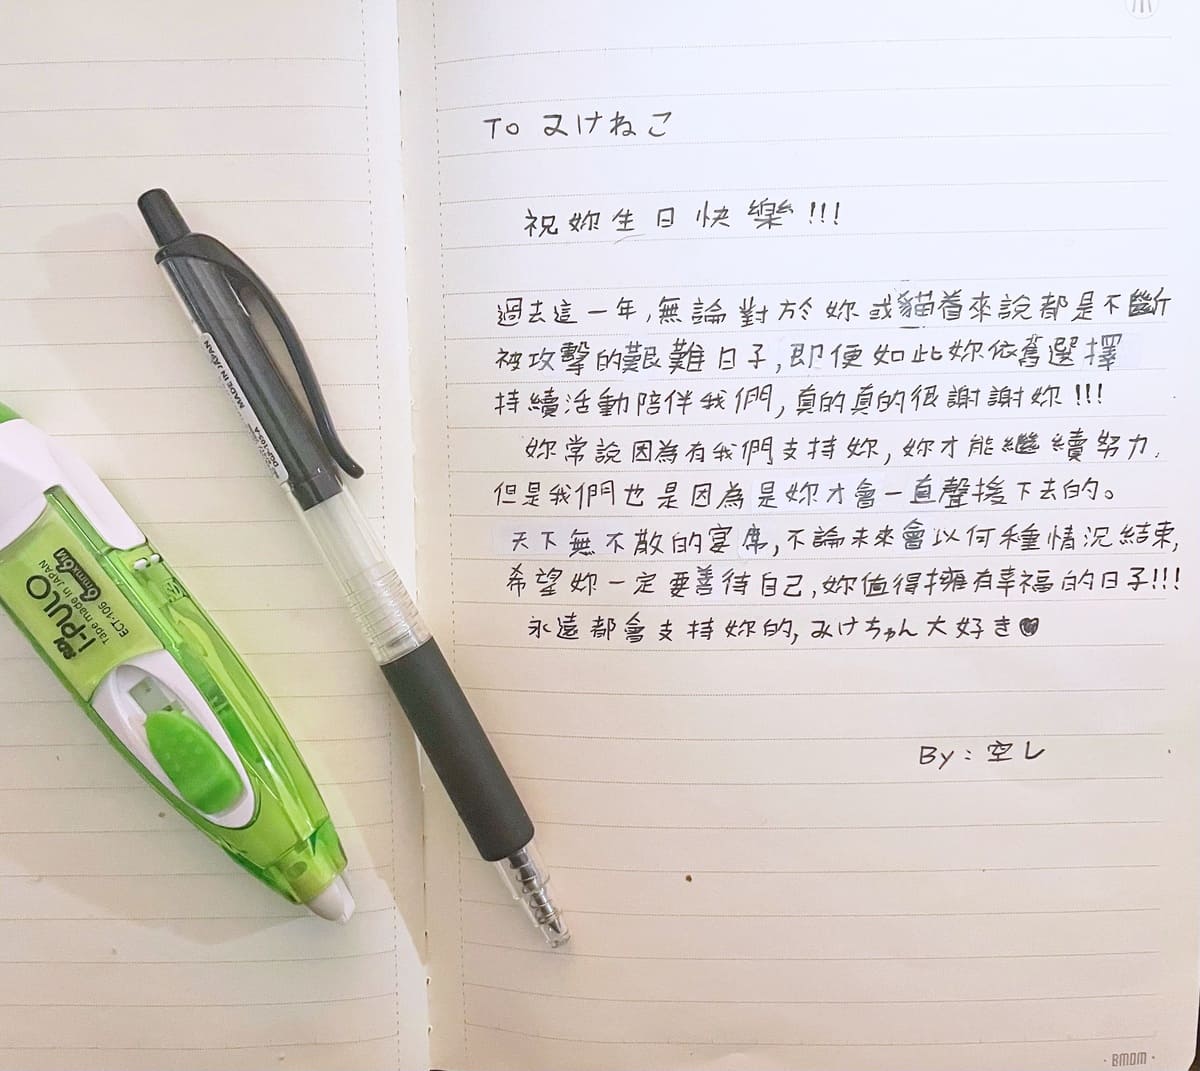 To みけねこ
祝妳生日快樂!!!
過去這一年,無論對於妳或貓眷來說都是不斷
被攻擊的艱難日子,即便如此妳依舊選擇
持續活動陪伴我們,真的真的很謝謝妳!!!
妳常說因為有我們支持妳,妳才能繼續努力,
但是我們也是因為是妳才會一直聲援下去的。
天下無不散的宴席,不論未來會以何種情況結束,
希望妳一定要善待自己,妳值得擁有幸福的日子!!!
永遠都會支持妳的,みけちゃん大好き♥
By:空し
MADE IN JAPAN
SDI
i-PULO
Tape made in JAPAN
ECT-106 6mmx6M
BMDM